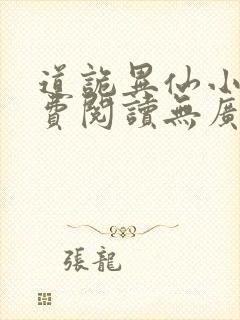 道詭異仙小
費閱讀無廣
張龍